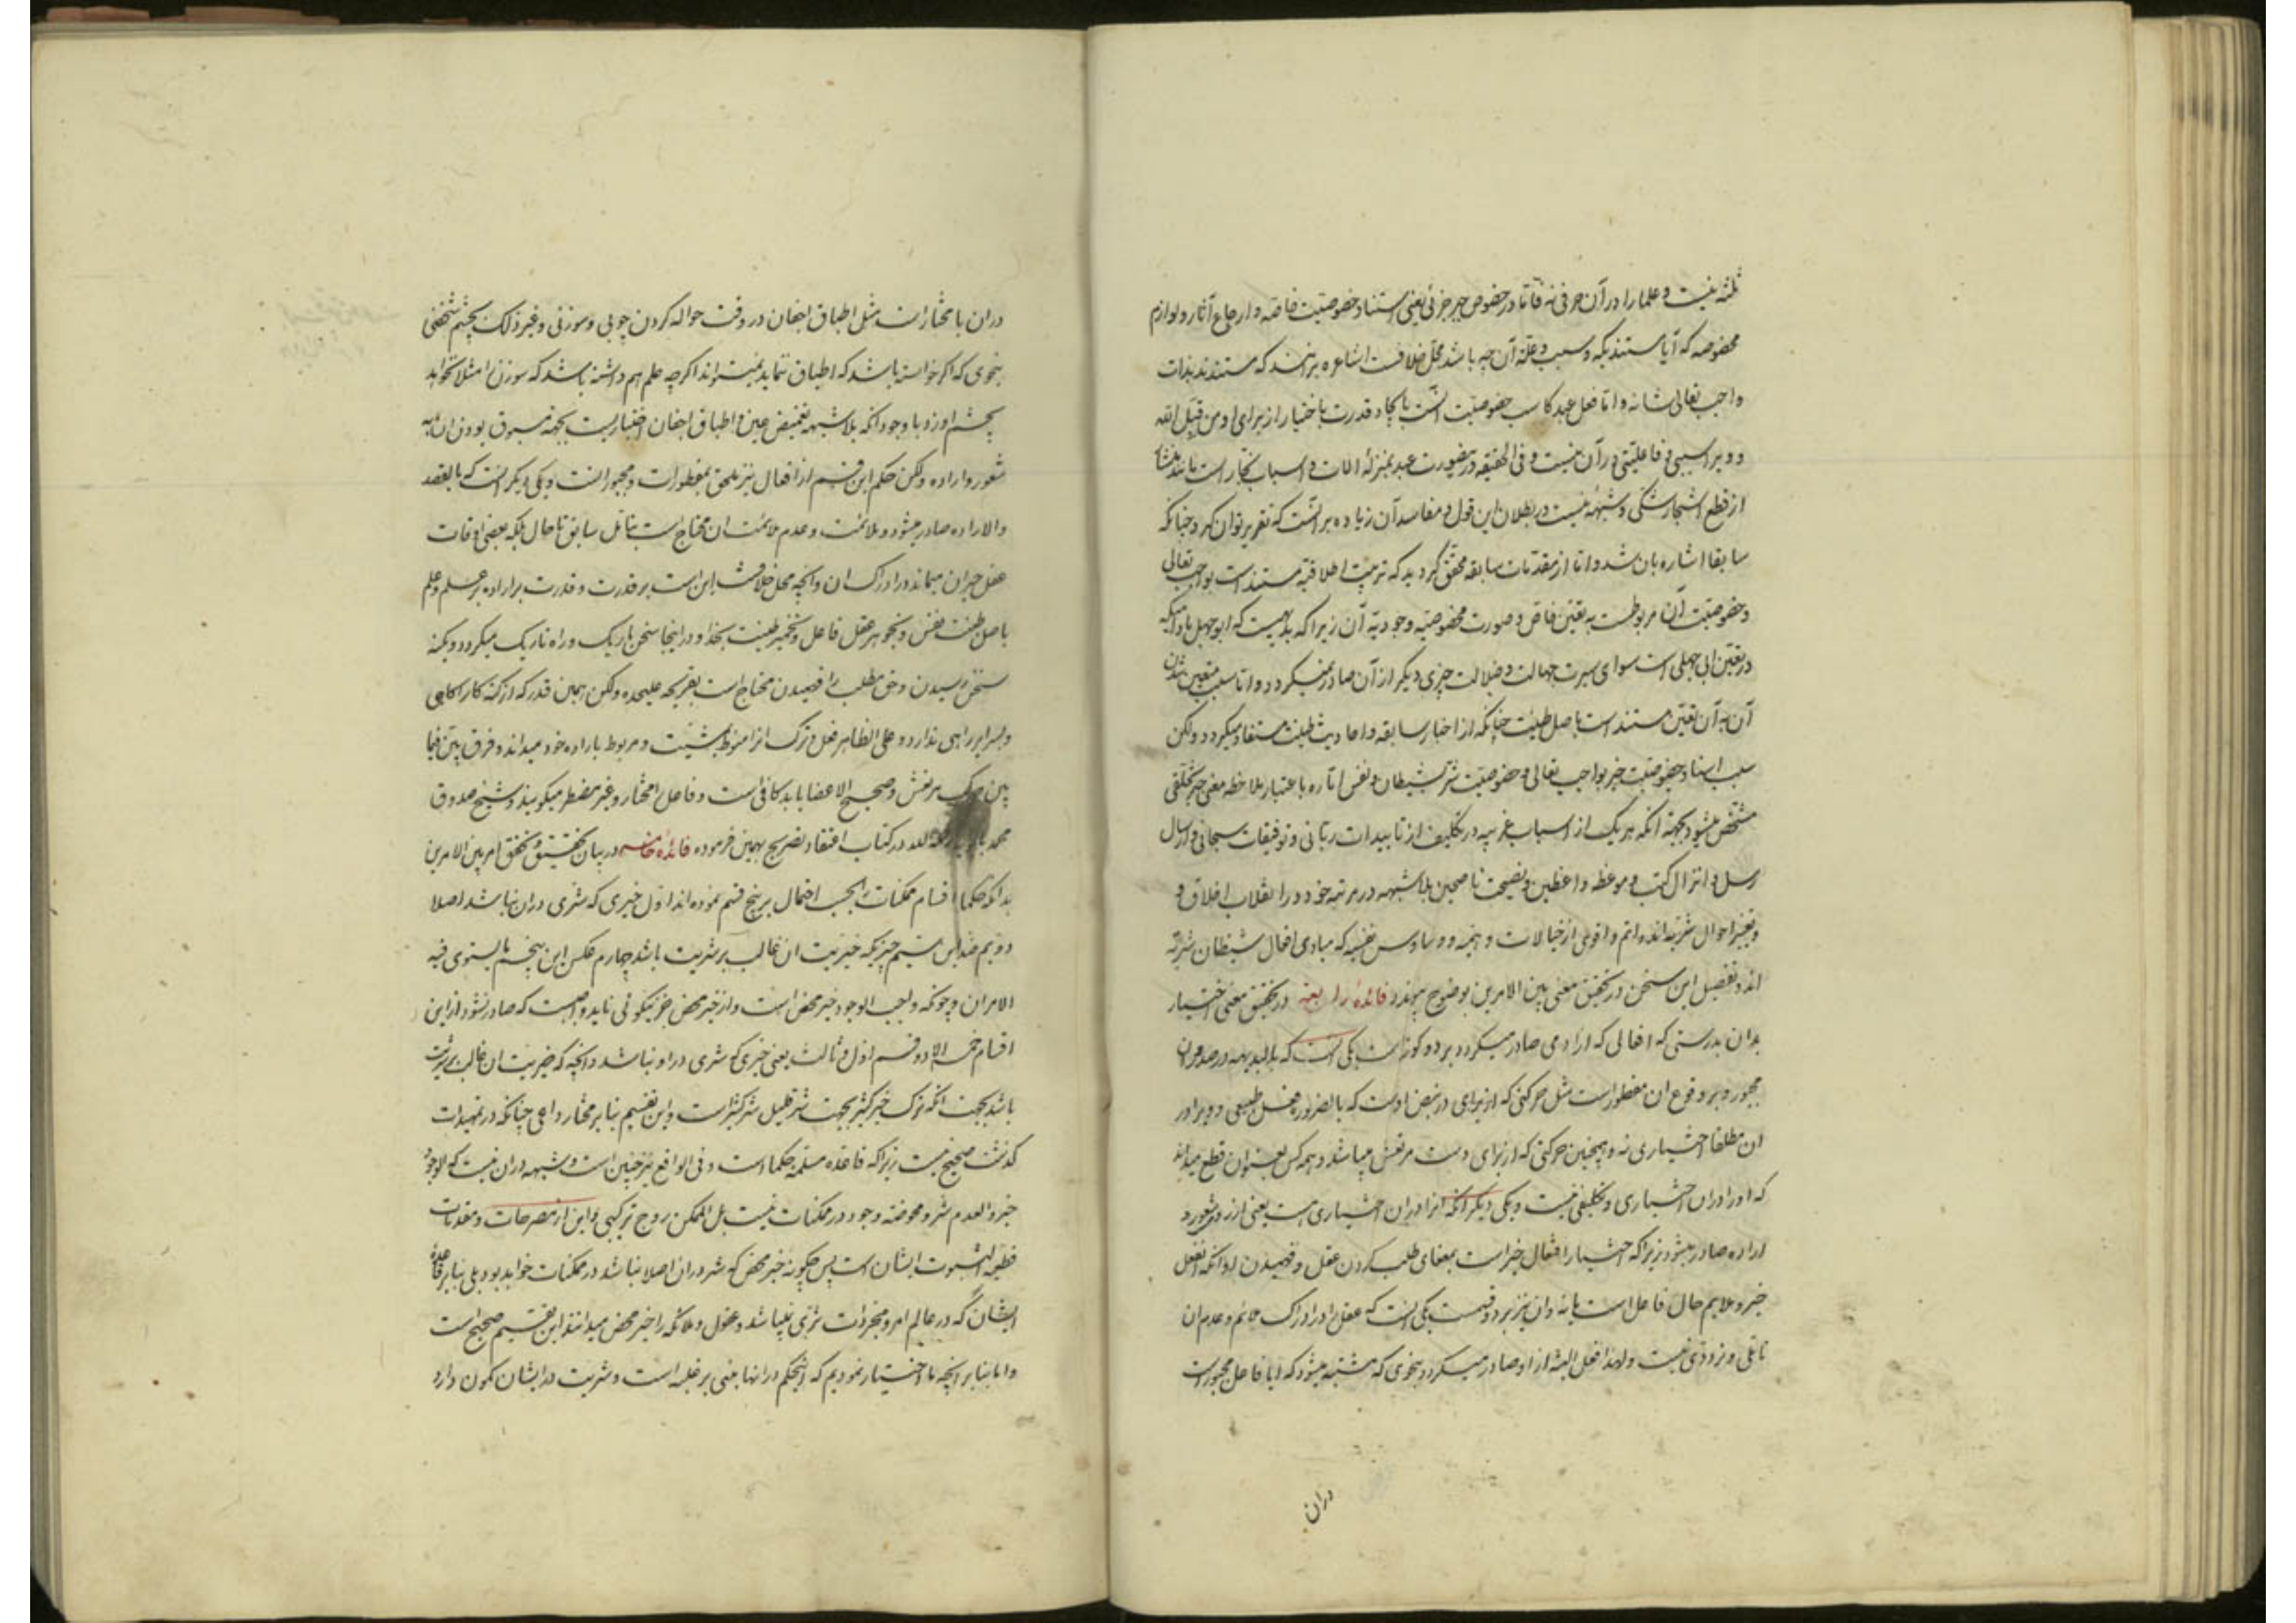 ثلثه نیست و علما را در آن حرفی نه و اما در خصوص خیر جزئی یعنی استناد خصوصیت خاصه و ارجاع آثار و لوازم
مخصوصه که آیا مستند بکه و سبب و علة آن چه باشد محل خلافست اشاعره برانند که مستندند بذات
واجب تعالی شانه و اما فعل عبد کاسب خصوصیت است بایجاد قدرت با اختیار از برای او من قبل الله
و ویرا سببی و فاعلیتی در آن نیست و فی الحقیقه درینصورت عبد بمنزلهٔ الات و اسباب نجار است
از قطع اشجار شکی و شبهه نیست در بطلان این قول و مفاسد آن زیاده بر انست که تقریر توان کرد چنانکه
سابقا اشاره بان شد و اما از مقدمات سابقه محقق گردید که تربیت اطلاقیه مستند است بواجب تعالی
و خصوصیت آن مربوطست به تعین خاص و صورت مخصوصیه وجودیه آن زیرا که بدیهیست که ابوجهل مادامیکه
در تعین ابی جهلی است سوای سیرت جهالت و ضلالت چیزی دیگر از آن صادر نمیگردد و اما سبب متعین شدن
آن به آن تعین مستند است باصل طینت چنانکه از اخبار سابقه و احادیث طینت مستفاد میگردد ولکن
سبب اسناد خصوصیت خیر بواجب تعالی و خصوصیت شر بشیطان و نفس اماره باعتبار ملاحظه معنی
مشخص میشود بجهة انکه هر یک از اسباب غریبه در تکلیف از تاییدات ربانی و توفیقات سبحانی و ارسال
رسل و انزال کتب و موعظه واعظین و نصیحت ناصحین بلاشبهه در مرتبه خود در انقلاب اخلاق و
و تغیر احوال شریه اند اتم و اقوی از خیالات وهمیه و وساوس نفسیه که مبادی افعال شیطان شریه
اند و تفصیل این سخن در تحقیق معنی بین الامرین بوضوح پیوندد فائدهٔ رابعه در تحقیق معنی اختیار
بدان بدرستی که افعالی که از آدمی صادر میگردد بر دو گونه است یکی انست که بالبدیهه در صدور ان
مجبور و بر وقوع ان مفطور است مثل حرکتی که از برای در نبض اوست که بالضروره فعل طبیعی و ویرا در
ان مطلقا اختیاری نه و همچنین حرکتی که از برای دست مرتعش میباشد و همه کس بعنوان قطع میداند
که او را در ان اختیاری و تکلیفی نیست و یکی دیگر انکه او را در ان اختیاری هست یعنی از روی شعور و
اراده صادر میشود زیرا که اختیار افتعال خیر است بمعنای طلب کردن عقل و فهمیدن او انکه فعل
خیر و ملایم حال فاعل است یا نه و ان نیز بر دو قسمت یکی انست که عقل را در ادراک ملائم و عدم ان
تاملی و تردّدی نیست و لهذا فعل البته از او صادر میگردد بنحوی که مشتبه میشود که ایا فاعل مجبور است
دران
دران یا مختار است مثل اطباق اجفان در وقت حواله کردن چوبی و سوزنی و غیر ذلک بچشم شخصی
بنحوی که اگر خواسته باشد که اطباق ننماید نمیتواند اگرچه علم هم داشته باشد که سوزن را مثلا نخواهد
بچشم او زد با وجود انکه بلاشبهه تغمیض عین و اطباق اجفان اختیاریست بجهة مسبوق بودن ان به
شعور و اراده ولکن حکم این قسم از افعال نیز ملحق بمفطورات و مجبور است و یکی دیگر انست که بالقصد
والاراده صادر میشود و ملائمت و عدم ملائمت ان محتاج است بتامل سابق تا حال بلکه بعضی اوقات
عقل حیران میماند در ادراک ان و انچه محل خلافست این است بر قدرت و قدرت بر اراده بر علم و علم
باصل طینت نفس و بجوهر عقل فاعل و تخمیر طینت بخدا و در اینجا سخن باریک و راه تاریک میگردد و بکنه
سخن رسیدن و حق مطلب را فهمیدن محتاج است بقریحه علیحده ولکن همین قدر که از کنه کار اگاهی
و بسرایر راهی ندارد و علی الظاهر فعل و ترک انرا منوط بمشیت و مربوط باراده خود میداند و فرق بین فیما
بین حرکت مرتعش و صحیح الاعضا یابد کافی است و فاعل را مختار و غیر مضطر میگویند و شیخ صدوق
محمد بن بابویه رحمه الله در کتاب اعتقاد تصریح بهمین فرموده فائدهٔ خامسه در بیان تحقیق و تحقق امر بین الامرین
بدانکه حکما اقسام ممکنات را بحسب احتمال بر پنج قسم نموده اند اول خیری که شری دران نباشد اصلا
دویم ضد این سیم چیزیکه خیریت ان غالب بر شریت باشد چهارم عکس این پنجم ما یستوی فیه
الامران و چونکه واجب الوجود خیر محض است و از خیر محض جز نیکوئی نیاید واجبست که صادر نشود از این
اقسام خمسه الا دو قسم اول و ثالث یعنی خیری که شری در او نباشد و انچه که خیریت ان غالب بر شریت
باشد بجهت انکه ترک خیر کثیر بجهت شر قلیل شر کثیر است و این تقسیم بنا بر مختار داعی چنانکه در تمهیدات
گذشت صحیح نیست زیرا که قاعده مسلمه حکما است و فی الواقع نیز چنین است و شبهه دران نیست که الوجود
خیر والعدم شر و محوضه وجود در ممکنات نیست بل الممکن زوج ترکیبی و این از مصرحات و مقدمات
قطعیه الثبوت ایشان است پس چگونه خیر محض که شر دران اصلا نباشد در ممکنات خواهد بود بلی بنا بر قاعدهٔ
ایشان که در عالم امر و مجردات شری نمیباشد و عقول و ملائکه را خیر محض میدانند این تقسیم صحیح است
و اما بنا بر انچه ما اختیار نمودیم که الحکم در انها مبنی بر غلبه است و شریت در ایشان کمون دارد